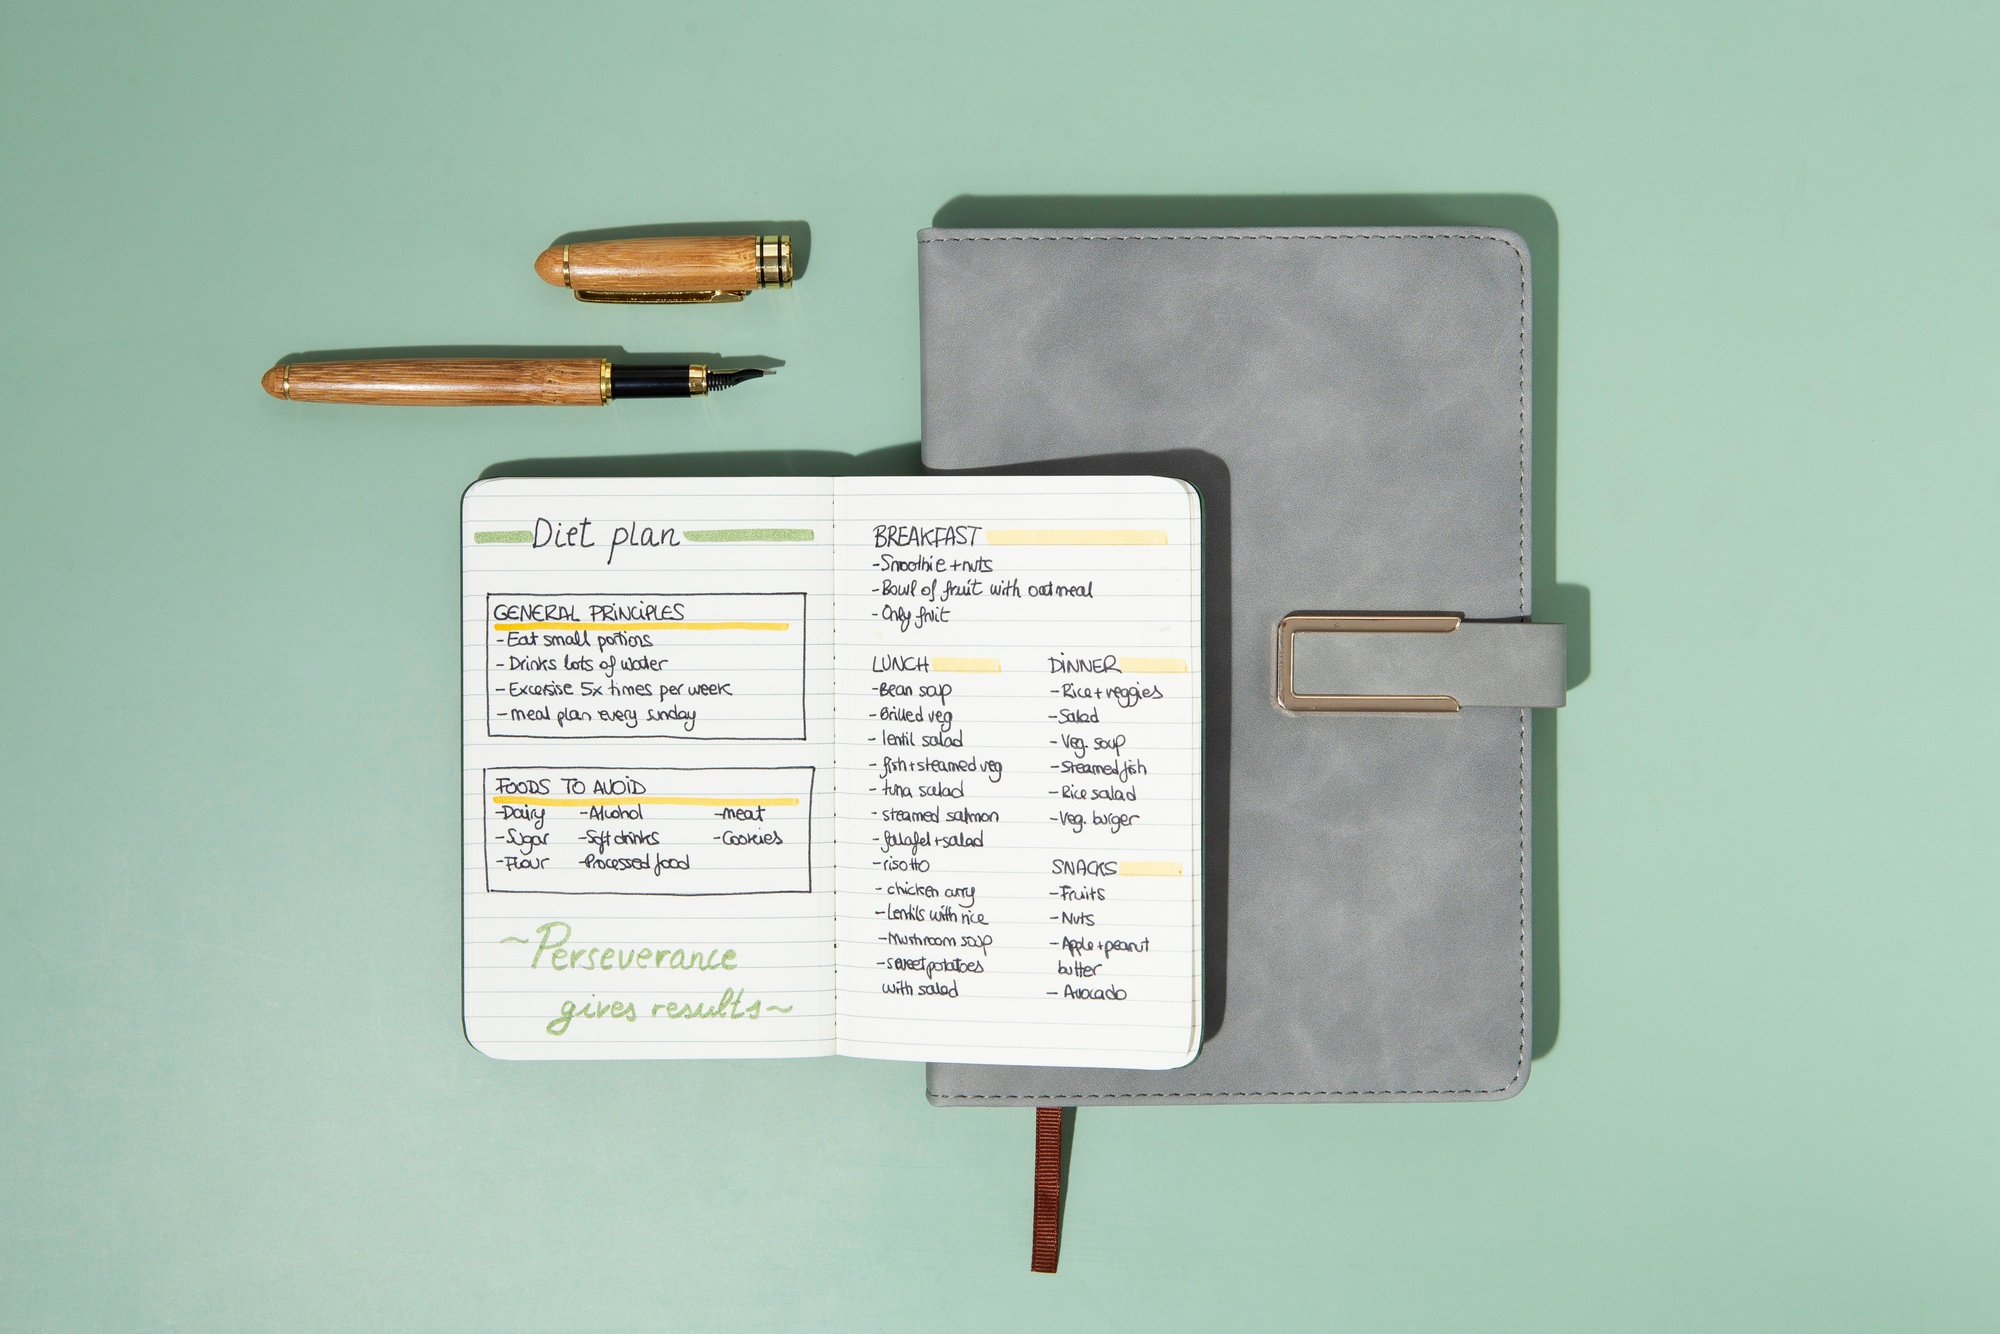 Diet plan
GENERAL PRINCIPLES
-Eat small portions
-Drinks lots of water
-Excersise 5x times per week
-meal plan every sunday
FOODS TO AVOID
-Dairy -Alcohol -meat
-Sugar -Soft drinks -Cookies
-Flour -Processed food
~Perseverance
gives results~
BREAKFAST
-Smoothie+nuts
-Bowl of fruit with oatmeal
-Only fruit
LUNCH
-Bean soup
-Grilled veg
-lentil salad
-fish+steamed veg
-tuna salad
-steamed salmon
-falafel+salad
-risotto
-chicken curry
-Lentils with rice
-Mushroom soup
-sweet potatoes
with salad
DINNER
-Rice+veggies
-Salad
-Veg. soup
-Steamed fish
-Rice salad
-Veg. burger
SNACKS
-Fruits
-Nuts
-Apple+peanut
butter
-Avocado